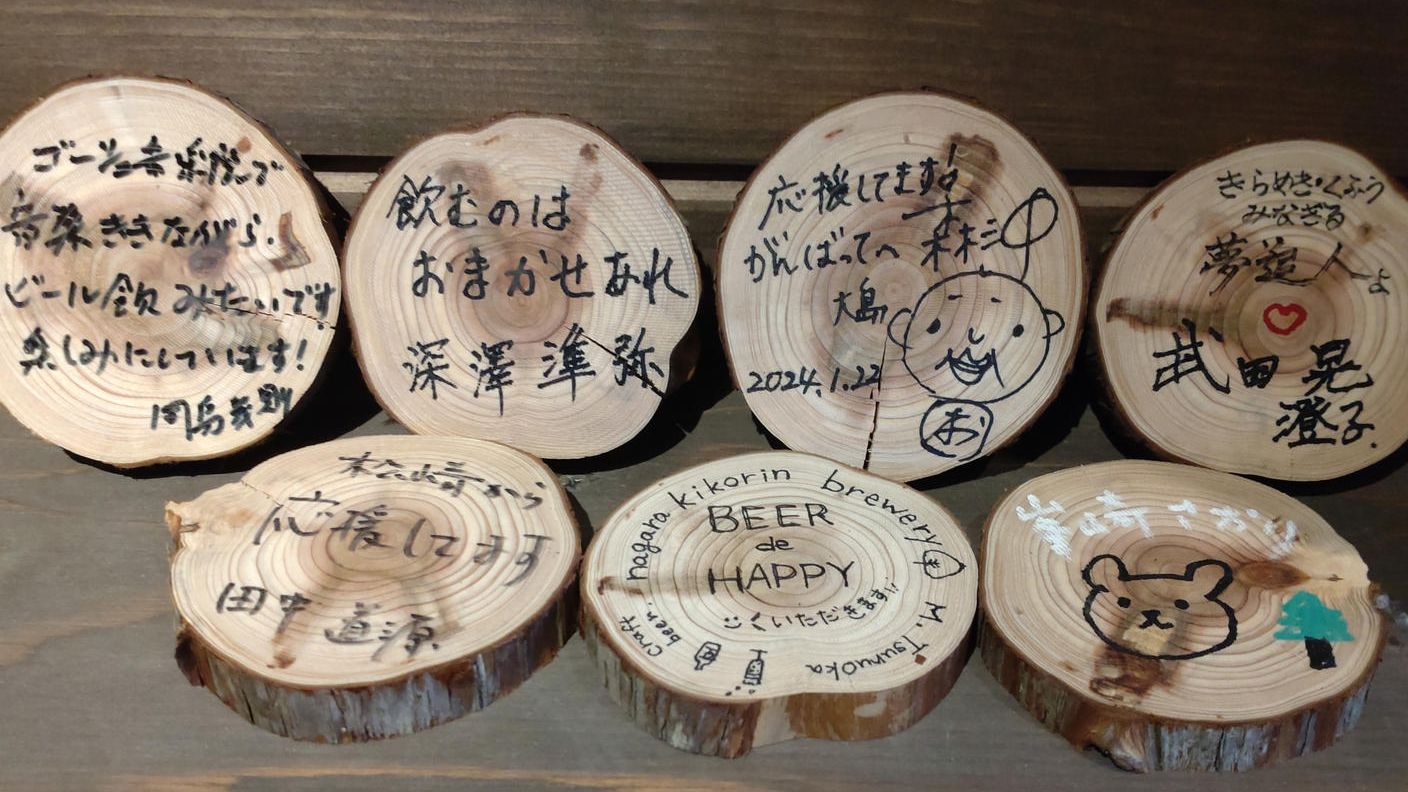 音楽ききながら、
ビール飲みたいです
楽しみにしています!
飲むのは
おまかせあれ
深澤準弥
応援してます!
がんばってへ
大島
2024.1.22
お
きらめき・くふう
みなぎる
夢追人よ
武田晃
澄子
松崎から
応援してます
田中道源
nagara kikorin brewery
BEER
de
HAPPY
いただきます!!
craft beer.
M. Tsuruoka
さおり